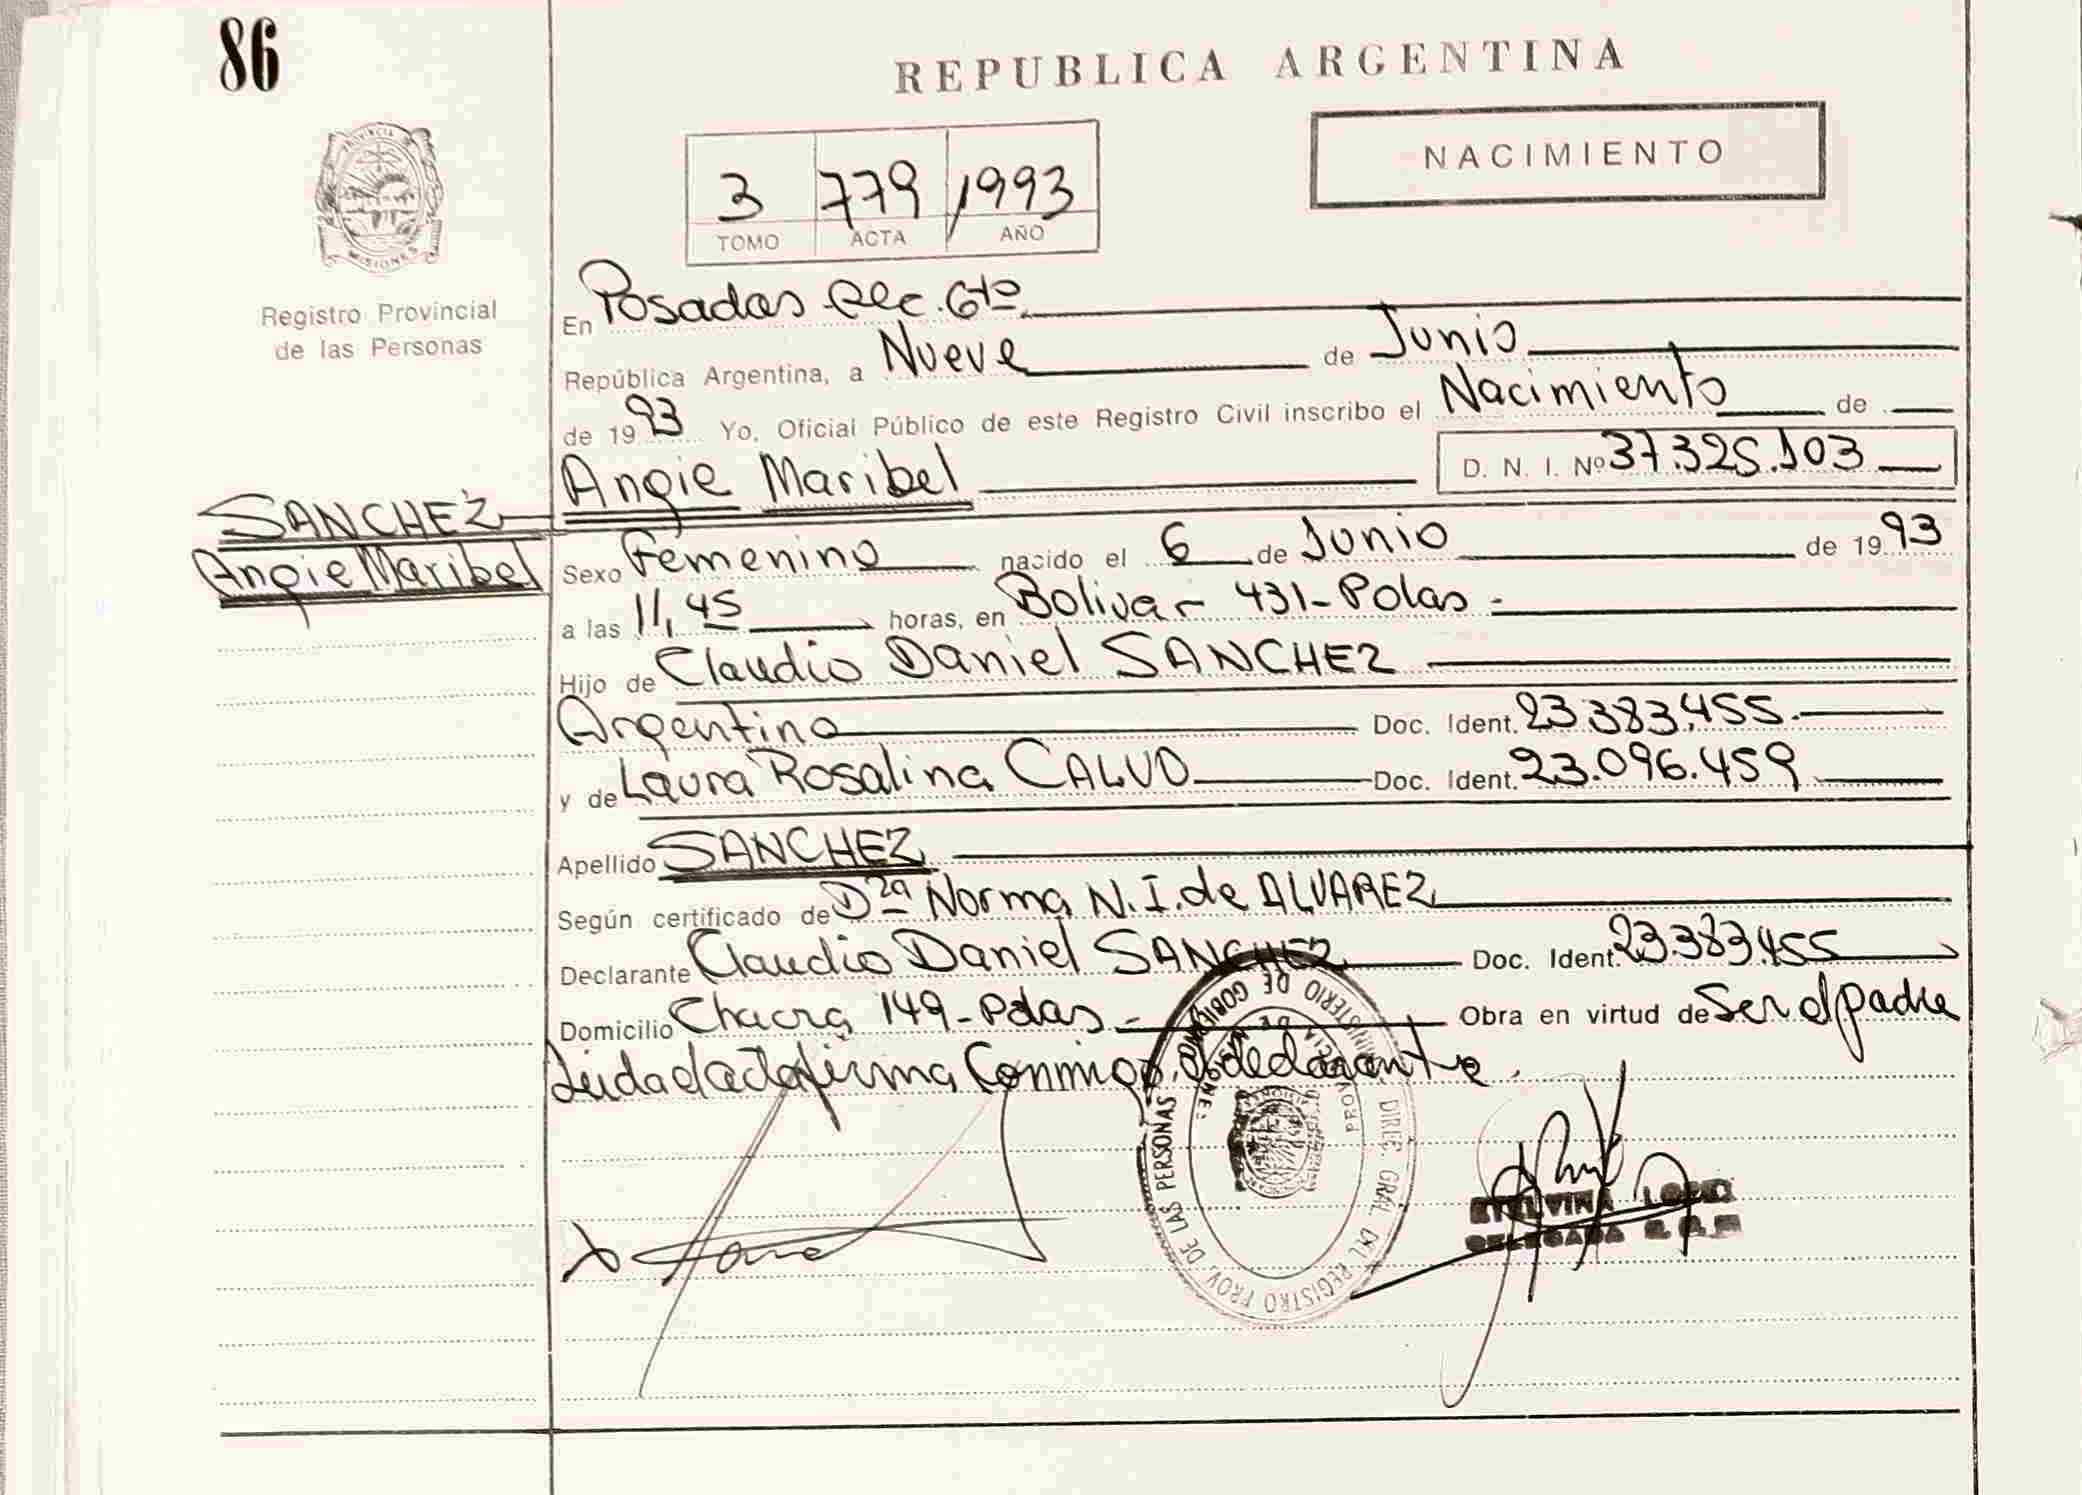 86
REPUBLICA ARGENTINA
PROVINCIA DE
MISIONES
Registro Provincial
de las Personas
NACIMIENTO
3 779 1993
TOMO ACTA AÑO
En Posadas 6to
República Argentina, a Nueve de Junio
de 1993 Yo, Oficial Público de este Registro Civil inscribo el Nacimiento de
Angie Maribel D. N. I. Nº 37.325.103
SANCHEZ
Angie Maribel
Sexo Femenino nacido el 6 de Junio de 1993
a las 11,45 horas, en Bolivar 431-Pdas.
Hijo de Claudio Daniel SANCHEZ
Argentino Doc. Ident. 23.383.455.
y de Laura Rosalina CALVO Doc. Ident. 23.096.459
Apellido SANCHEZ
Según certificado de Dra Norma N.I. de ALVAREZ
Declarante Claudio Daniel SANCHEZ Doc. Ident. 23.383.455
Domicilio Chacra 149-Pdas. Obra en virtud de Ser el padre
Leida el acta firma Conmigo, el declarante.
MINISTERIO DE GOBIERNO
DIREC. GRAL. DEL REGISTRO PROV. DE LAS PERSONAS
PROVINCIA DE MISIONES
ETELVINA LOPEZ
DELEGADA